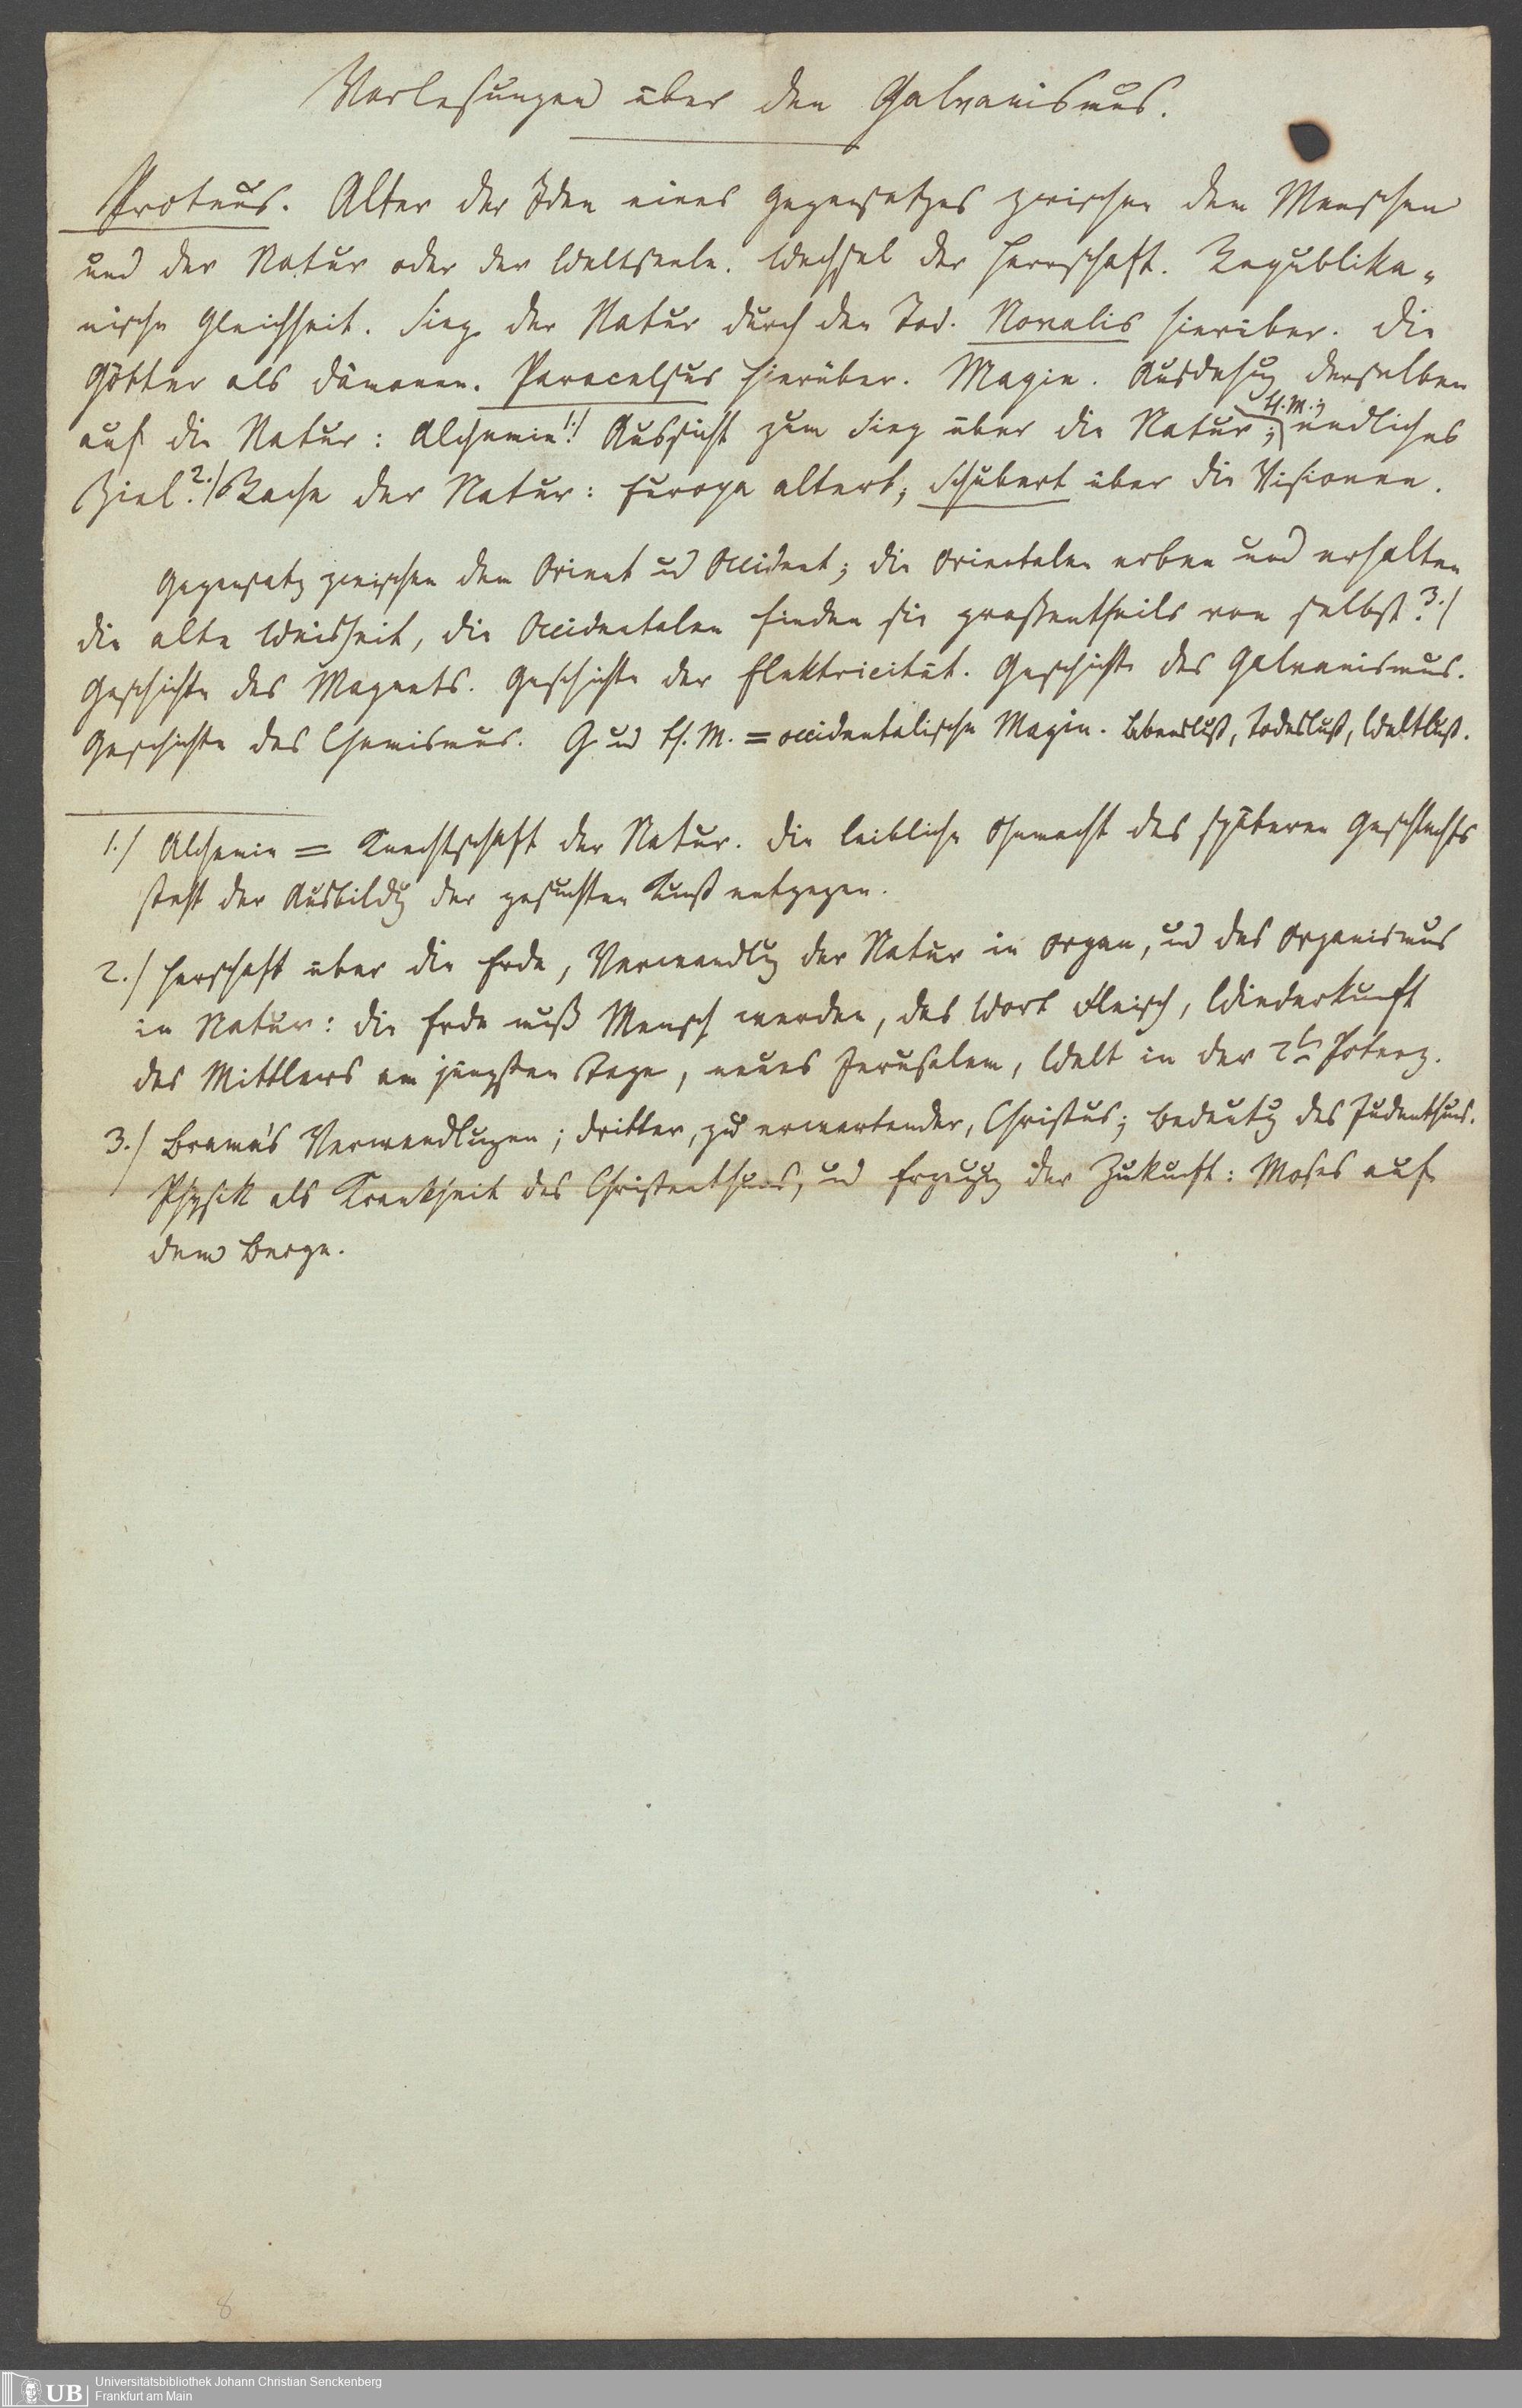 Vorlesungen über den Galvanismus.
Proteus. Alter der Idee eines Gegensatzes zwischen dem Menschen
und der Natur oder der Weltseele. Wechsel der Herrschaft. Republika-
nische Gleichheit. Sieg der Natur durch den Tod. Novalis hierüber. Die
Götter als Dämonen. Paracelsus hierüber. Magie. Ausdehnung derselben
auf die Natur: Alchemie.1.) Aussicht zum Sieg über die Natur; th. M.; endliches
Ziel.2.) Rache der Natur: Europa altert; Schubert über die Visionen.
Gegensatz zwischen dem Orient und Occident; die Orientalen erben und erhalten
die alte Weisheit, die Occidentalen finden sie großentheils von selbst.3.)
Geschichte des Magnets. Geschichte der Elektricität. Geschichte des Galvanismus.
Geschichte des Chemismus. G. und th. M. = occidentalische Magie. Lebenslust, Todeslust, Weltlust.
1.) Alchemie = Knechtschaft der Natur. Die leibliche Ohnmacht des späteren Geschlechts
steht der Ausbildung der gesuchten Kunst entgegen.
2.) Herrschaft über die Erde, Verwandlung der Natur in Organ, und des Organismus
in Natur: die Erde muß Mensch werden, das Wort Fleisch, Wiederkunft
des Mittlers am jüngsten Tage, neues Jerusalem, Welt in der 2ten Potenz.
3.) Brama's Verwandlungen; dritter, zu erwartender, Christus; Bedeutung des Judenthums.
Physik als Krankheit des Christenthums, und Erzeugung der Zukunft: Moses auf
dem Berge.
8
UB
Universitätsbibliothek Johann Christian Senckenberg
Frankfurt am Main